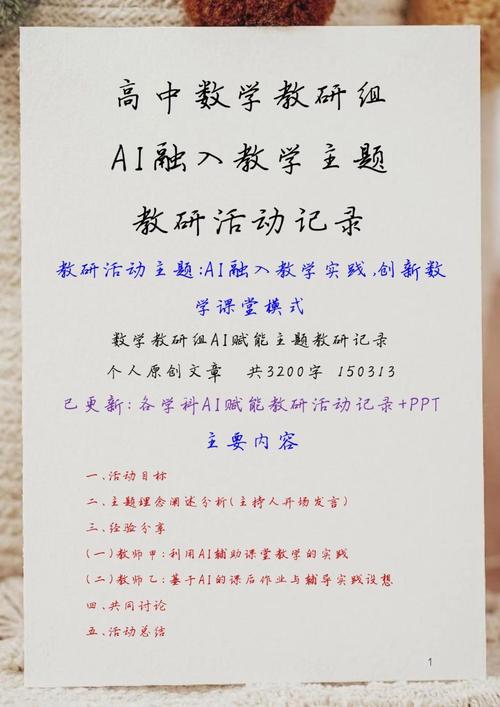 高中数学教研组
AI融入教学主题
教研活动记录
教研活动主题:AI融入教学实践,创新数
学课堂模式
数学教研组AI赋能主题教研记录
个人原创文章 共3200字 150313
已更新:各学科AI赋能教研活动记录+PPT
主要内容
一、活动目标
二、主题理念阐述分析(主持人开场发言)
三、经验分享
(一)教师甲:利用AI辅助课堂教学的实践
(二)教师乙:基于AI的课后作业与辅导实践设想
四、共同讨论
五、活动总结
1